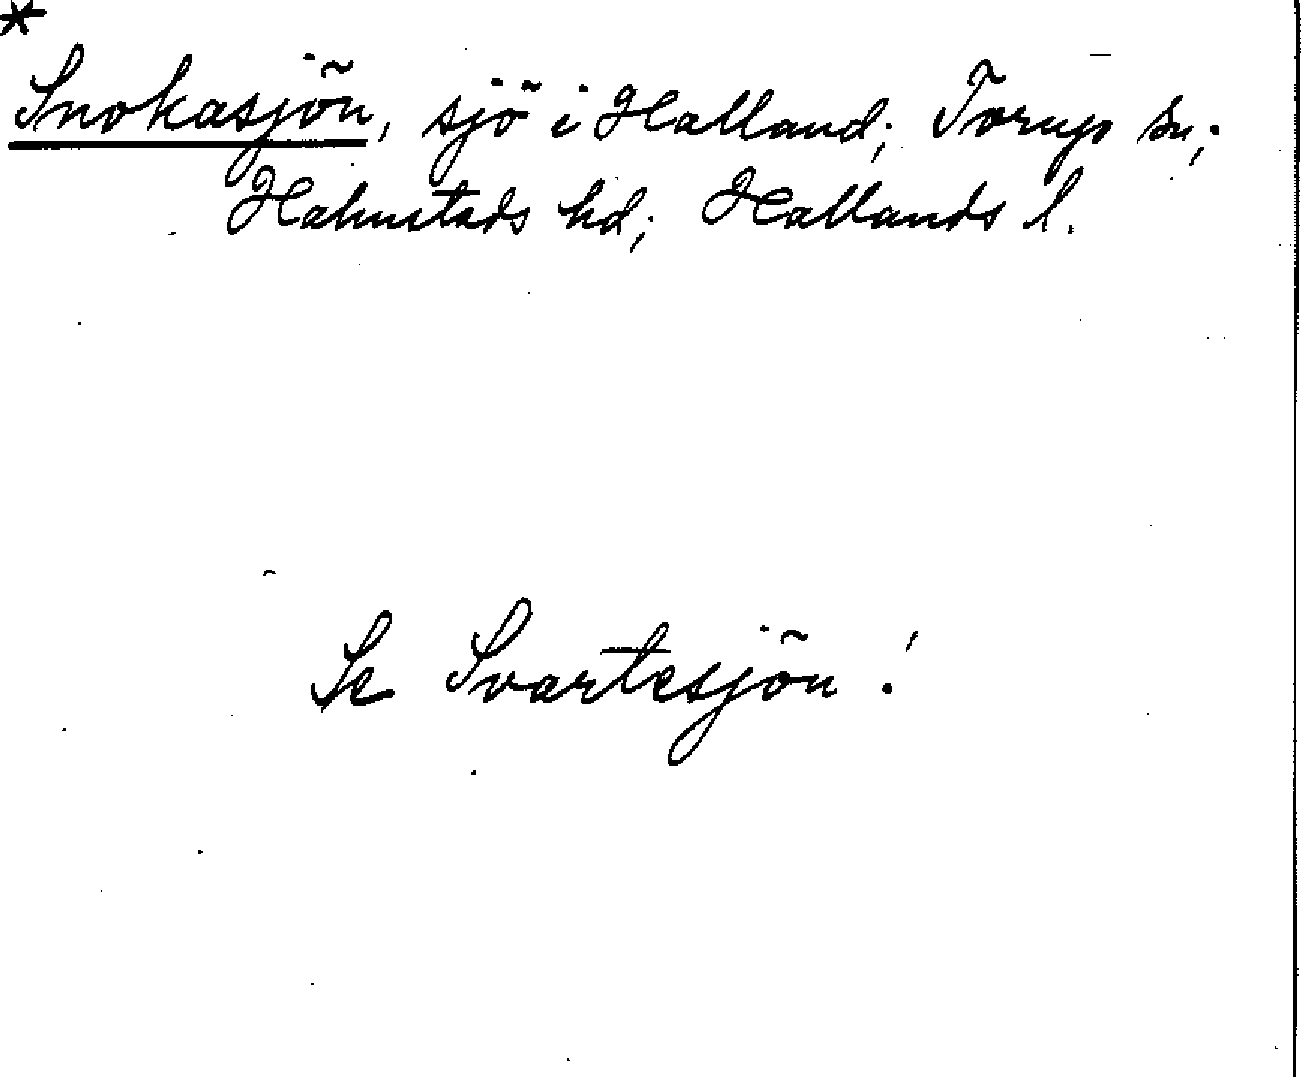 *
Snokasjön, sjö i Halland; Torup sn;
Halmstads hd; Hallands l.
Se Svartesjön!